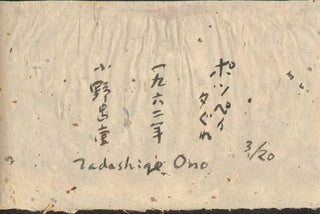 ポンペイ
夕ぐれ
一九六二年
小野忠重
Tadashige Ono
3/20